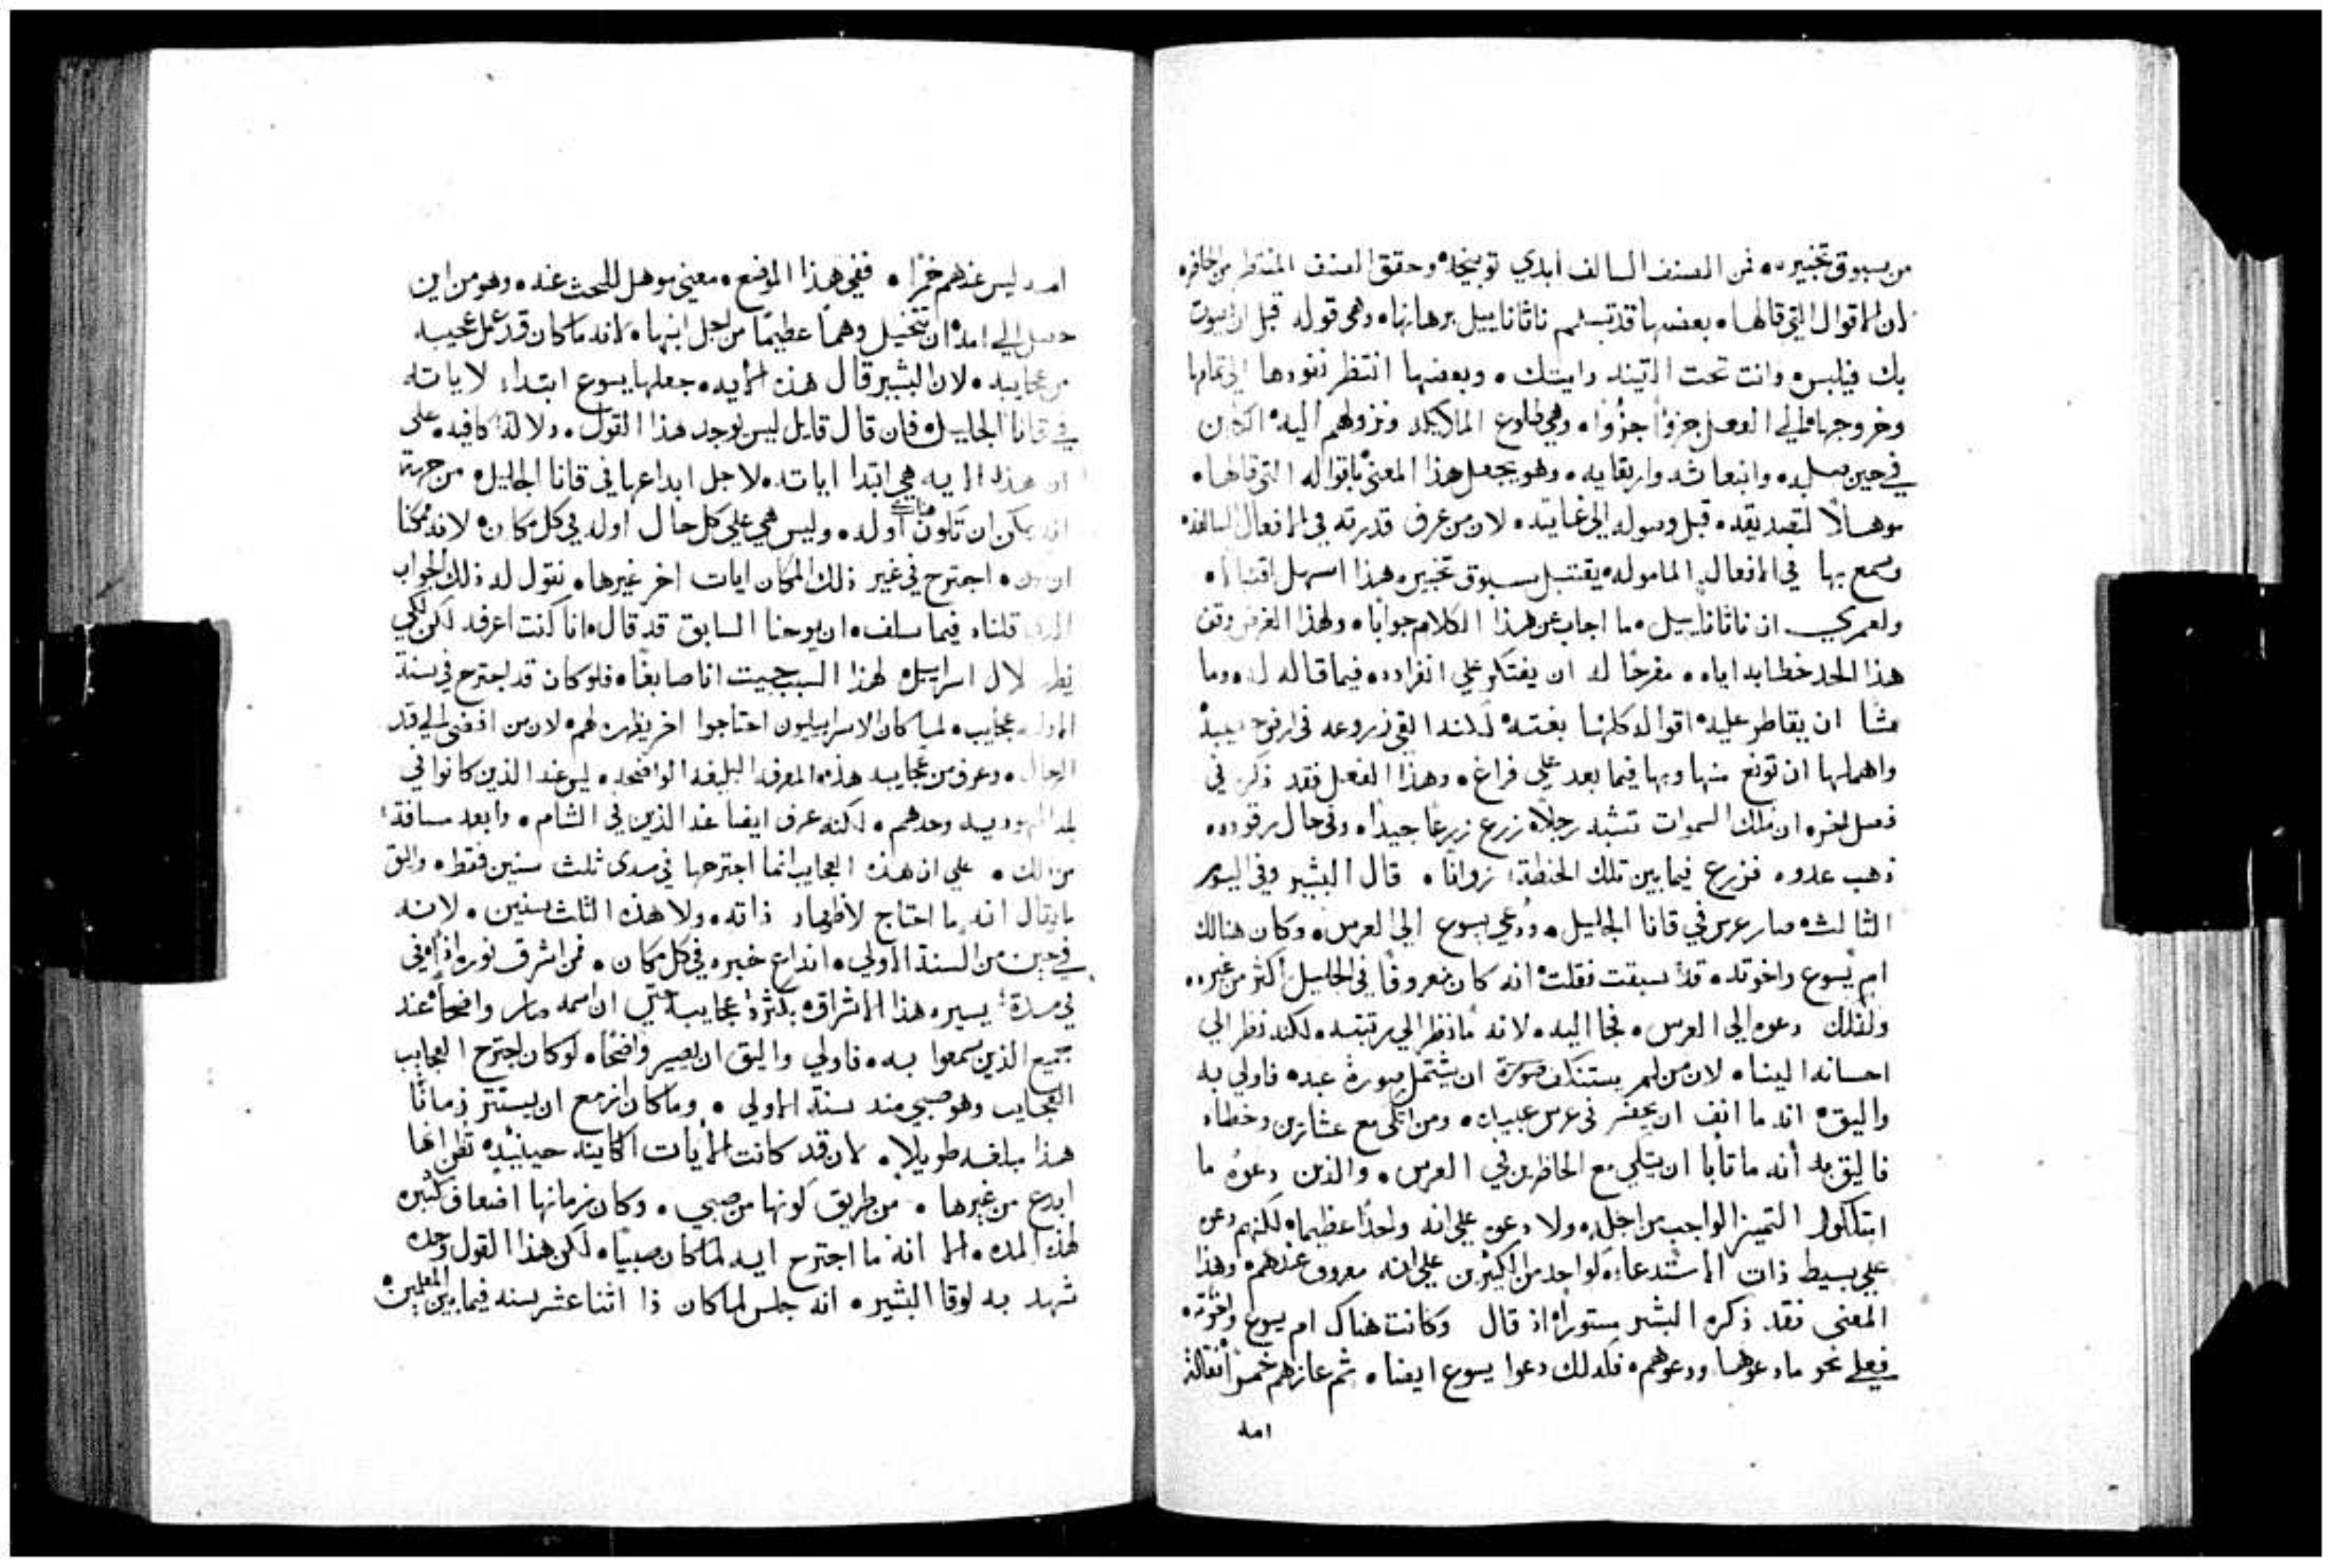 من سبوق تخبيره ه فمن الصنف السالف ابدي توبيخاه وحقق الصنف المنتظر من الحاضره
لان الاقوال التي قالها ه بعضها قد تسلم ناثاناييل برهانها ه وهي قوله قبل ان يصوت
بك فيلبس ه وانت تحت التينه رايتك ه وبعضها انتظر نفوذها الي تمامها
وخروجها الي الفعل جزوًا جزوًا ه وهي طلوع الملايكه ونزولهم اليه الكاين
في حين صلبه ه وانبعاثه وارتقايه ه وهو يجعل هذا المعني باقواله التي قالها ه
موهلاً لتصديقه ه قبل وصوله الي غايته ه لان من عرف قدرته في الافعال السالفه
وسمع بها في الافعال الماموله يقتبل سبوق تخبيره هذا اسهل اقتبالاً ه
ولعمري ان ناثاناييل ه ما اجاب عن هذا الكلام جوابًا ه ولهذا الغرض وقف
هذا الحد خطابه اياه ه مفرجًا له ان يفتكر علي انفراده ه فيما قاله له ه وما
شا ان يقاطر عليه اقواله كلها بغتة لكنه القي زروعه في ارض خصيبة
واهملها ان تونع منها وبها فيما بعد علي فراغ ه وهذا الفعل فقد ذكره في
فصل اخر ه ان ملك السموات تشبه رجلاً زرع زرعًا جيدًا ه وفي حال رقوده ه
ذهب عدوه فزرع فيما بين تلك الحنطة زوانًا ه قال البشير وفي اليوم
الثالث ه صار عرس في قانا الجليل ه ودُعي يسوع الي العرس ه وكان هنالك
ام يسوع واخوته ه قد سبقت فقلت انه كان معروفًا في الجليل اكثر من غيره ه
ولذلك دعوه الي العرس ه فجا اليه ه لانه ما نظر الي رتبته ه لكنه نظر الي
احسانه الينا ه لان من لم يستنكف صورة ان يشتمل صورة عبده فاولي به
واليق ه انه ما انف ان يحضر في عرس عبيده ه ومن اتكى مع عشارين وخطاه
فاليق به انه ما تابا ان يتكي مع الحاظرين في العرس ه والذين دعوه ما
امتلكوا التميز الواجب من اجله ه ولا دعوه علي انه واحدًا عظيما ه لكنهم دعوه
علي بسيط ذات الاستدعا ه كواحد من الكثيرين علي انه معروف عندهم ه وهذا
المعني فقد ذكره البشير مستورًا ه اذ قال وكانت هناك ام يسوع واخوته ه
فعلي نحو ما دعوها ودعوهم ه فكذلك دعوا يسوع ايضا ه ثم عازهم خمرًا فقالت
امه
امه ليس عندهم خمرًا ه ففي هذا الموضع ه معني موهل للبحث عنه ه وهو من اين
حصل الي امه ان تتخيل وهمًا عظيمًا من اجل ابنها ه لانه ما كان قد عمل عجيبه
من عجايبه ه لان البشير قال هذه الايه ه جعلها يسوع ابتداء لاياته
في قانا الجليل ه فان قال قايل ليس يوجد هذا القول ه دلالة كافيه ه على
ان هذه الايه هي ابتدا اياته ه لاجل ابداعها في قانا الجليل ه من جهة
انه يمكن ان تكون هناك اوله ه وليس هي علي كل حال اوله في كل مكان ه لانه ممكنا
ان يكون ه اجترح في غير ذلك المكان ايات اخر غيرها ه نقول له ذلك الجواب
الذي قلناه فيما سلف ه ان يوحنا السابق قد قال ه انا كنت اعرفه لكن لكي
يظهر لال اسراييل ه لهذا السبب جيت انا صابغًا ه فلو كان قد اجترح في سنة
الاوله عجايب ه لما كان الاسراييليون احتاجوا اخر يظهره لهم ه لان من افضي الي قد
الرجال ه وعرف من عجايبه هذه المعرفه البليغه الواضحه ه ليس عند الذين كانوا في
بلد اليهوديه وحدهم ه لكنه عرف ايضا عند الذين في الشام ه وابعد مسافة
من ذلك ه علي ان هذه العجايب انما اجترحها في مدى ثلث سنين فقط ه واليق
ما يقال انه ما احتاج لاظهار ذاته ه ولا هذه الثلث سنين ه لانه
في حين من السنة الاولي ه انذاع خبره في كل مكان ه فمن اشرق نوره اذًا ه في
في مدة يسيره هذا الاشراق ه بكثرة عجايبه حتي ان اسمه صار واضحًا ه عند
جميع الذين سمعوا به ه فاولي واليق ان يصير واضحًا ه لو كان اجترح العجايب
العجايب وهو صبي منذ سنة الاولي ه وما كان ازمع ان يستتر زمانًا
هذا مبلغه طويلا ه لان قد كانت الايات الكاينه حينيذ ه تظن انها
ابدع من غيرها ه من طريق كونها من صبي ه وكان زمانها اضعاف كثيره
لهذه المده ه الا انه ما اجترح ايه لما كان صبيًا ه لكن هذا القول وحده
شهد به لوقا البشير ه انه جلس لما كان ذا اثنا عشر سنه فيما بين المعلمين ه